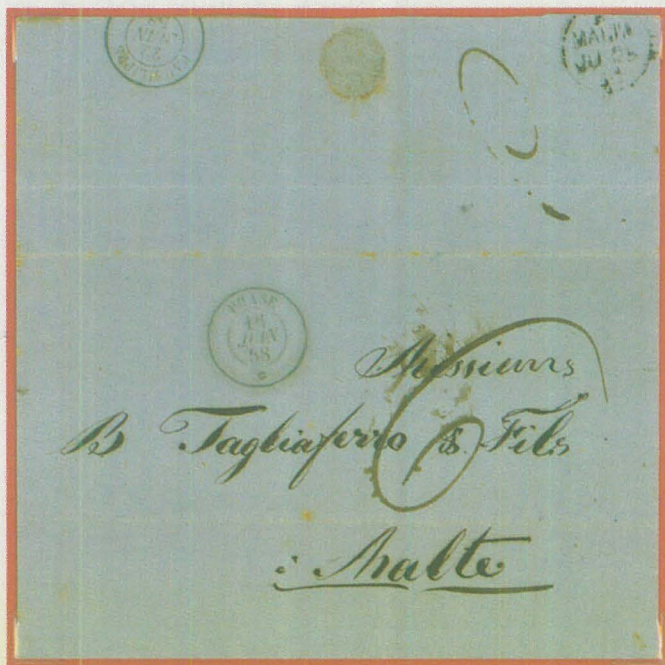 MALTA
JU 25
22
JUIN
BRASE
16
JUIN
58
Messieurs
B Tagliaferro & Fils
6
: Malte